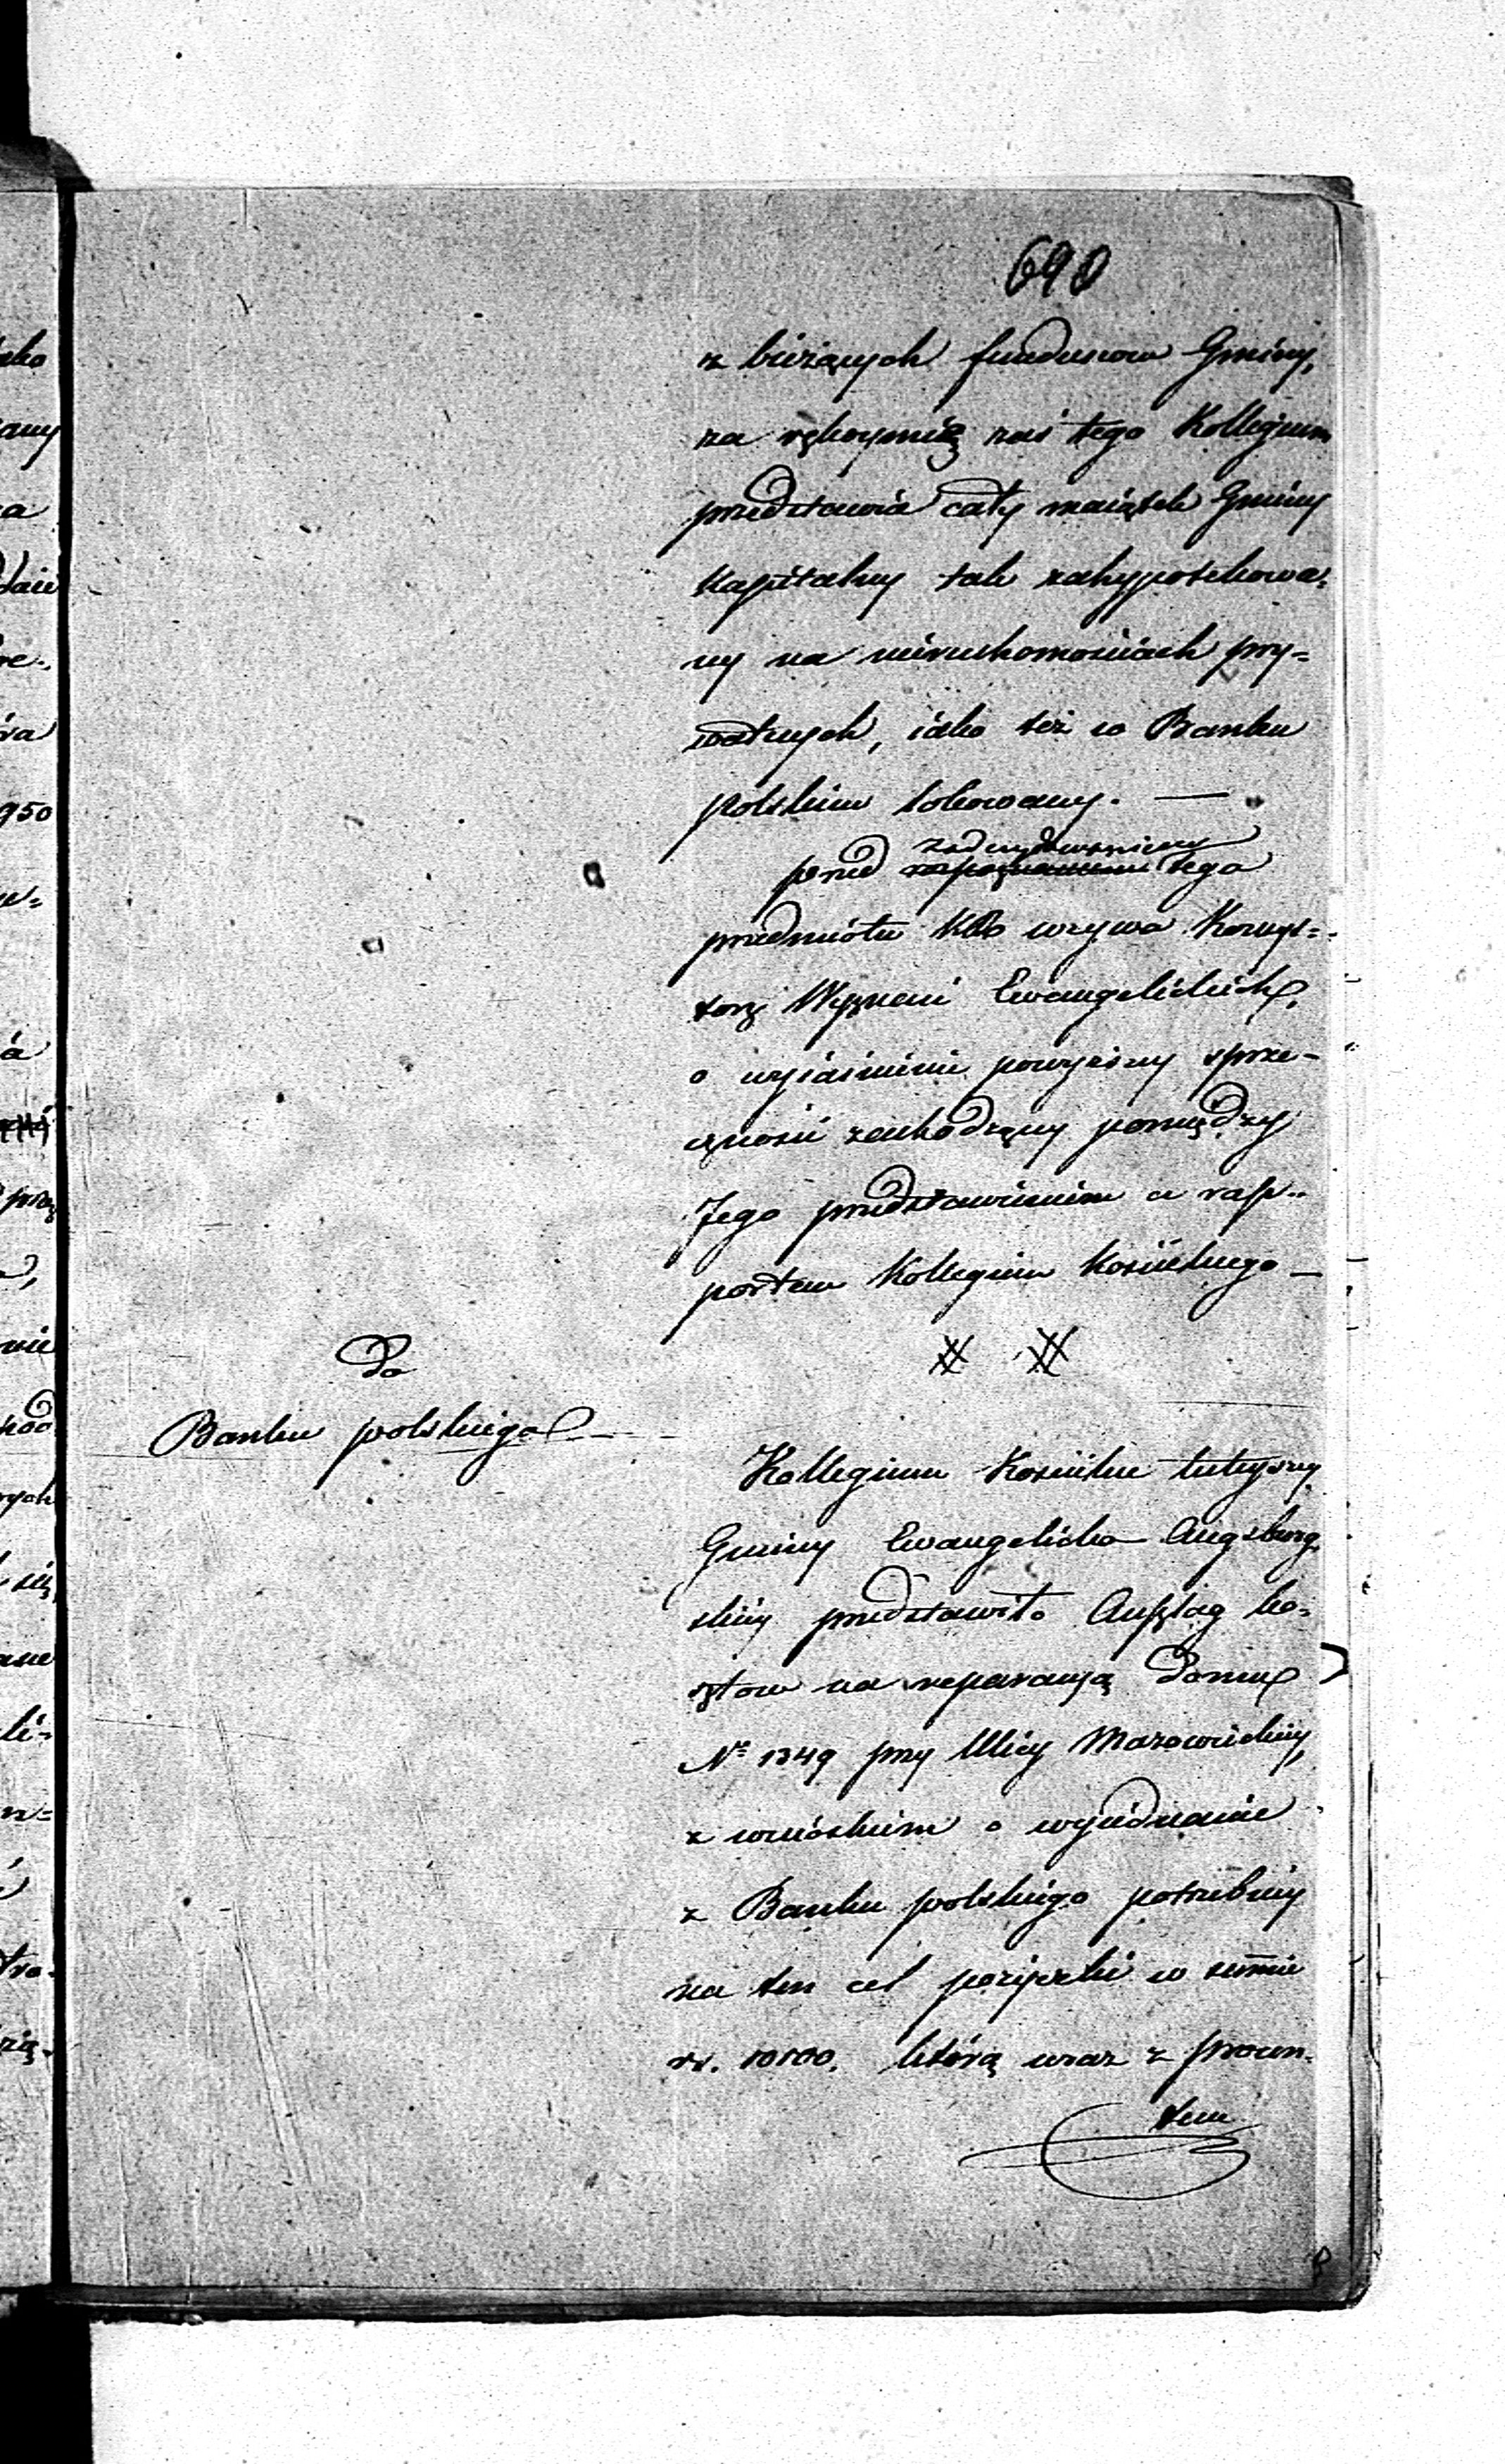 690
z bieżących funduszow Gminy,
za rękoymię zaś tego Kollegium
przedstawia cały maiątek Gminy
Kapitalny tak zahypotekowa-
ny na nieruchomościach pry=
watnych, iako też w Banku
polskim lokowany. —
zadecydowaniem
przed tego
przedmiotu KR wzywa Konsys=
torz Wyznań Ewangelickich,
o wyiaśnienie powyższy sprze-
czności zachodzący pomiędzy
Jego przedstawieniem a rap-
portem Kollegium Kościelnego —
Do
Banku polskiego
Kollegium Kościelne tuteyszey
Gminy Ewangelicko Augsburg-
skiey przedstawiło Anszlag ko-
sztow na reparacyą Domu
No 1349 przy Ulicy Mazowieckiey,
z wnioskiem o wyiednanie
z Banku polskiego potrzebney
na ten cel pożyczki w summie
rs. 10100. którą wraz z procen-
tem